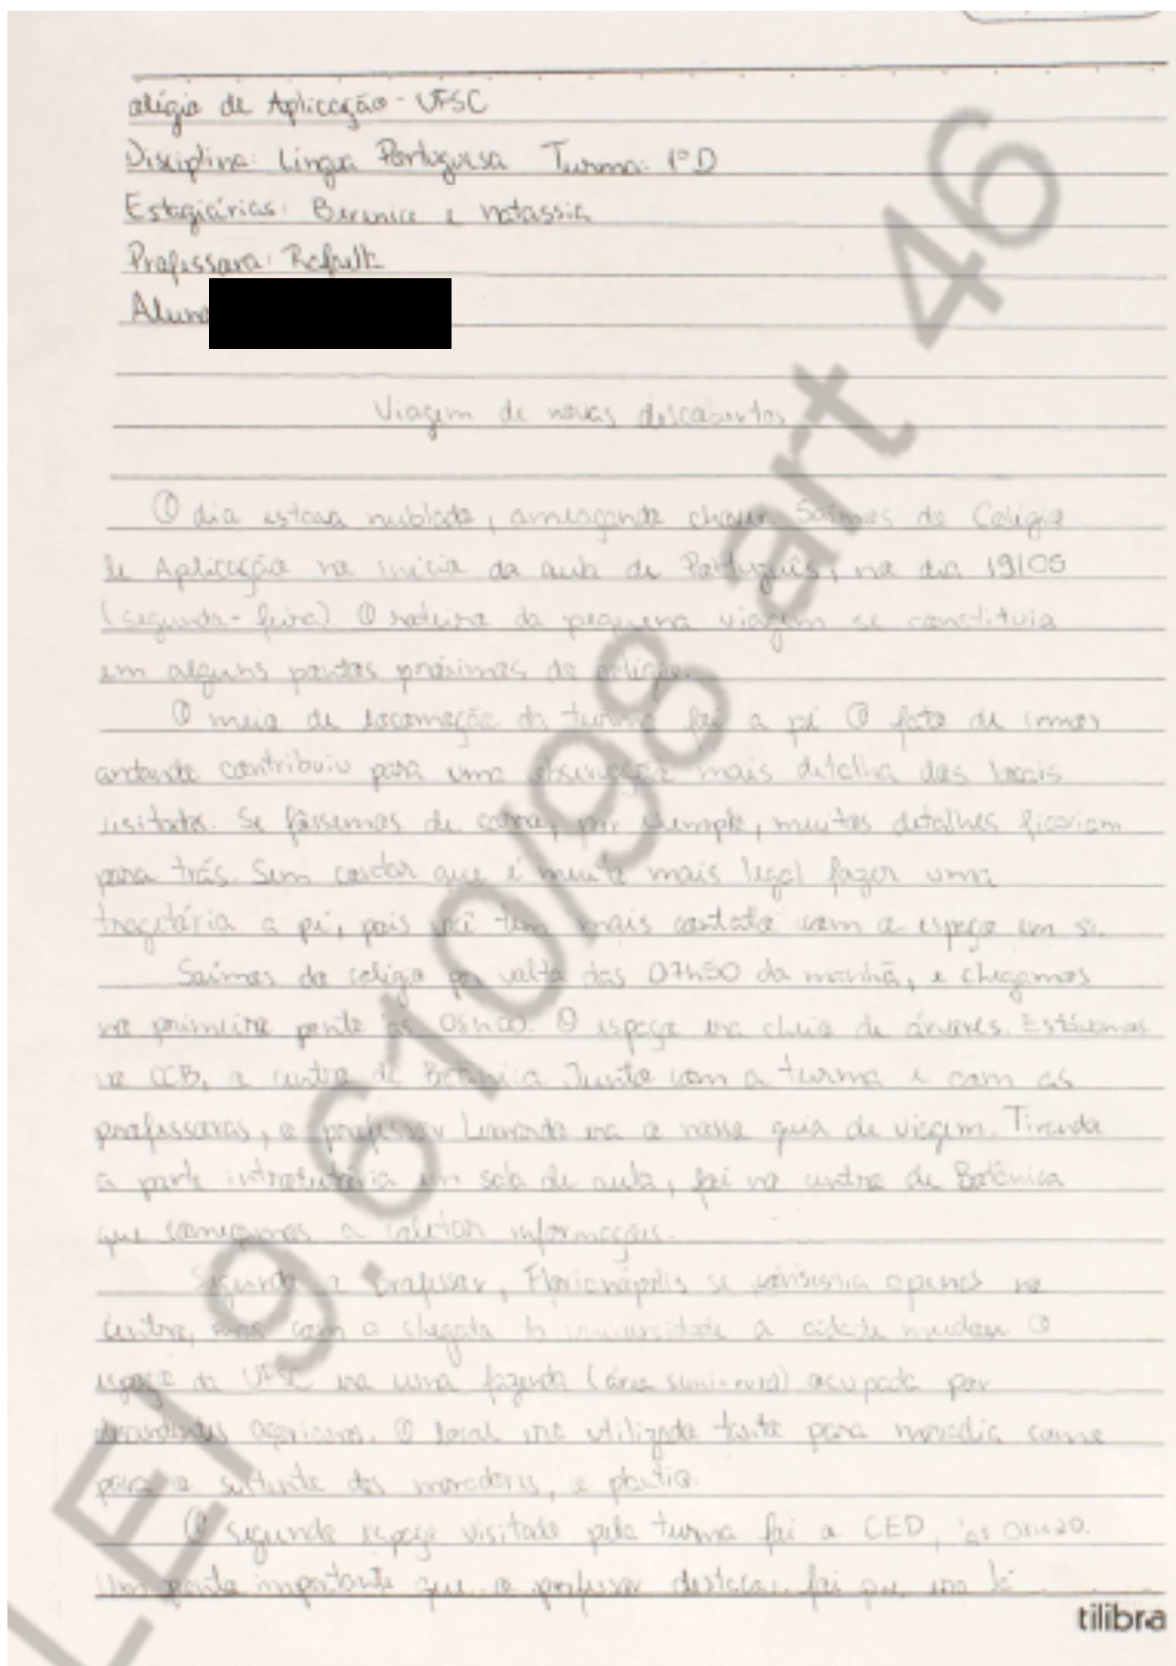 olégio de Aplicação - UFSC
Disciplina: Língua Portuguesa Turma: 1º D
Estagiárias: Berenice e Natassia
Professora:
Aluna
Viagem de novas descobertas
O dia estava nublado, ameaçando chover. Saímos do Colégio
de Aplicação no início da aula de Português, no dia 19/05
(segunda-feira). O roteiro da pequena viagem se constituia
em alguns pontos próximos do colégio.
O meio de locomoção da turma foi a pé. O fato de irmos
andando contribuiu para uma observação mais detalha dos locais
visitados. Se fôssemos de carro, por exemplo, muitos detalhes ficariam
para trás. Sem contar que é muito mais legal fazer uma
tragetória a pé, pois você tem mais contato com o espaço em si.
Saímos do colégo por volta das 07h50 da manhã, e chegamos
no primeiro ponto às 08h00. O espaço era cheio de árvores. Estávamos
no CCB, o centro de Botânica. Junto com a turma e com as
professoras, o professor era o nosso guia de viagem. Tirando
a parte introdutória em sala de aula, foi no centro de Botânica
que começamos a coletar informações.
Segundo o professor, Florianópolis se apenas no
centro, mas com a chegada da universidade a cidade mudou. O
espaço da UFSC era uma fazenda (área semi-rural) ocupada por
descendentes açorianos. O local era utilizado tanto para moradia como
para o sustento dos moradores, o plantio.
O segundo espaço visitado pela turma foi o CED, às 08h20.
Um ponto importante que o professor destacou foi que era lá
tilibra
LEI 9.610/98 art 46